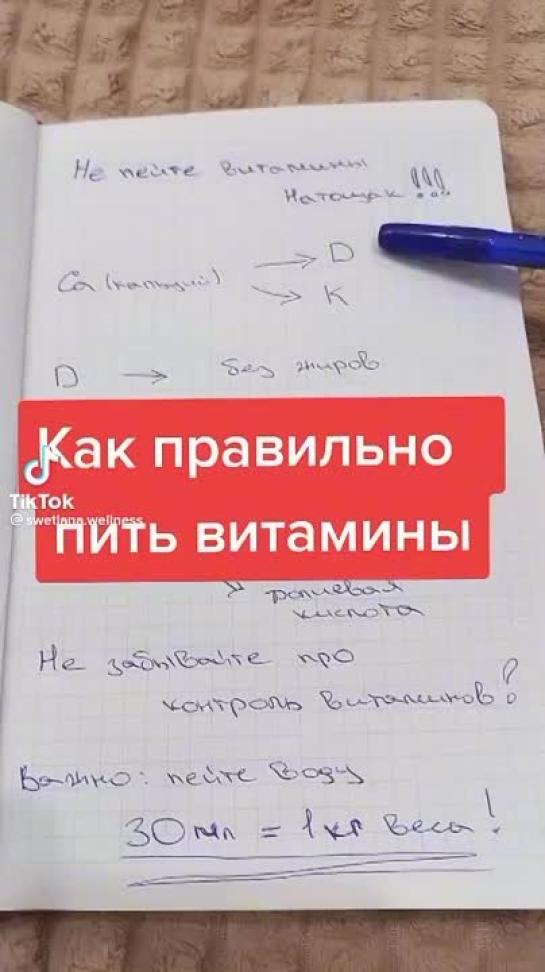 Не пейте витамины
Натощак !!!
Ca (кальций) → D
↘ K
D → без жиров
Как правильно
пить витамины
TikTok
@swetlana.wellness
↘ фолиевая
кислота
Не забывайте про
контроль витаминов!
Важно: пейте воду
30 мл = 1 кг веса!